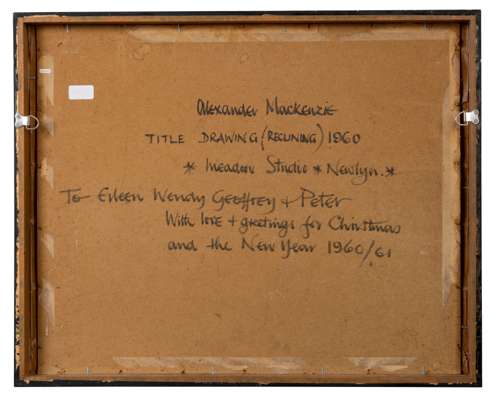 Alexander Mackenzie
TITLE DRAWING (RECLINING) 1960
* Meadow Studio * Newlyn. *
To Eileen Wendy Geoffrey + Peter
With love + greetings for Christmas
and the New Year 1960/61